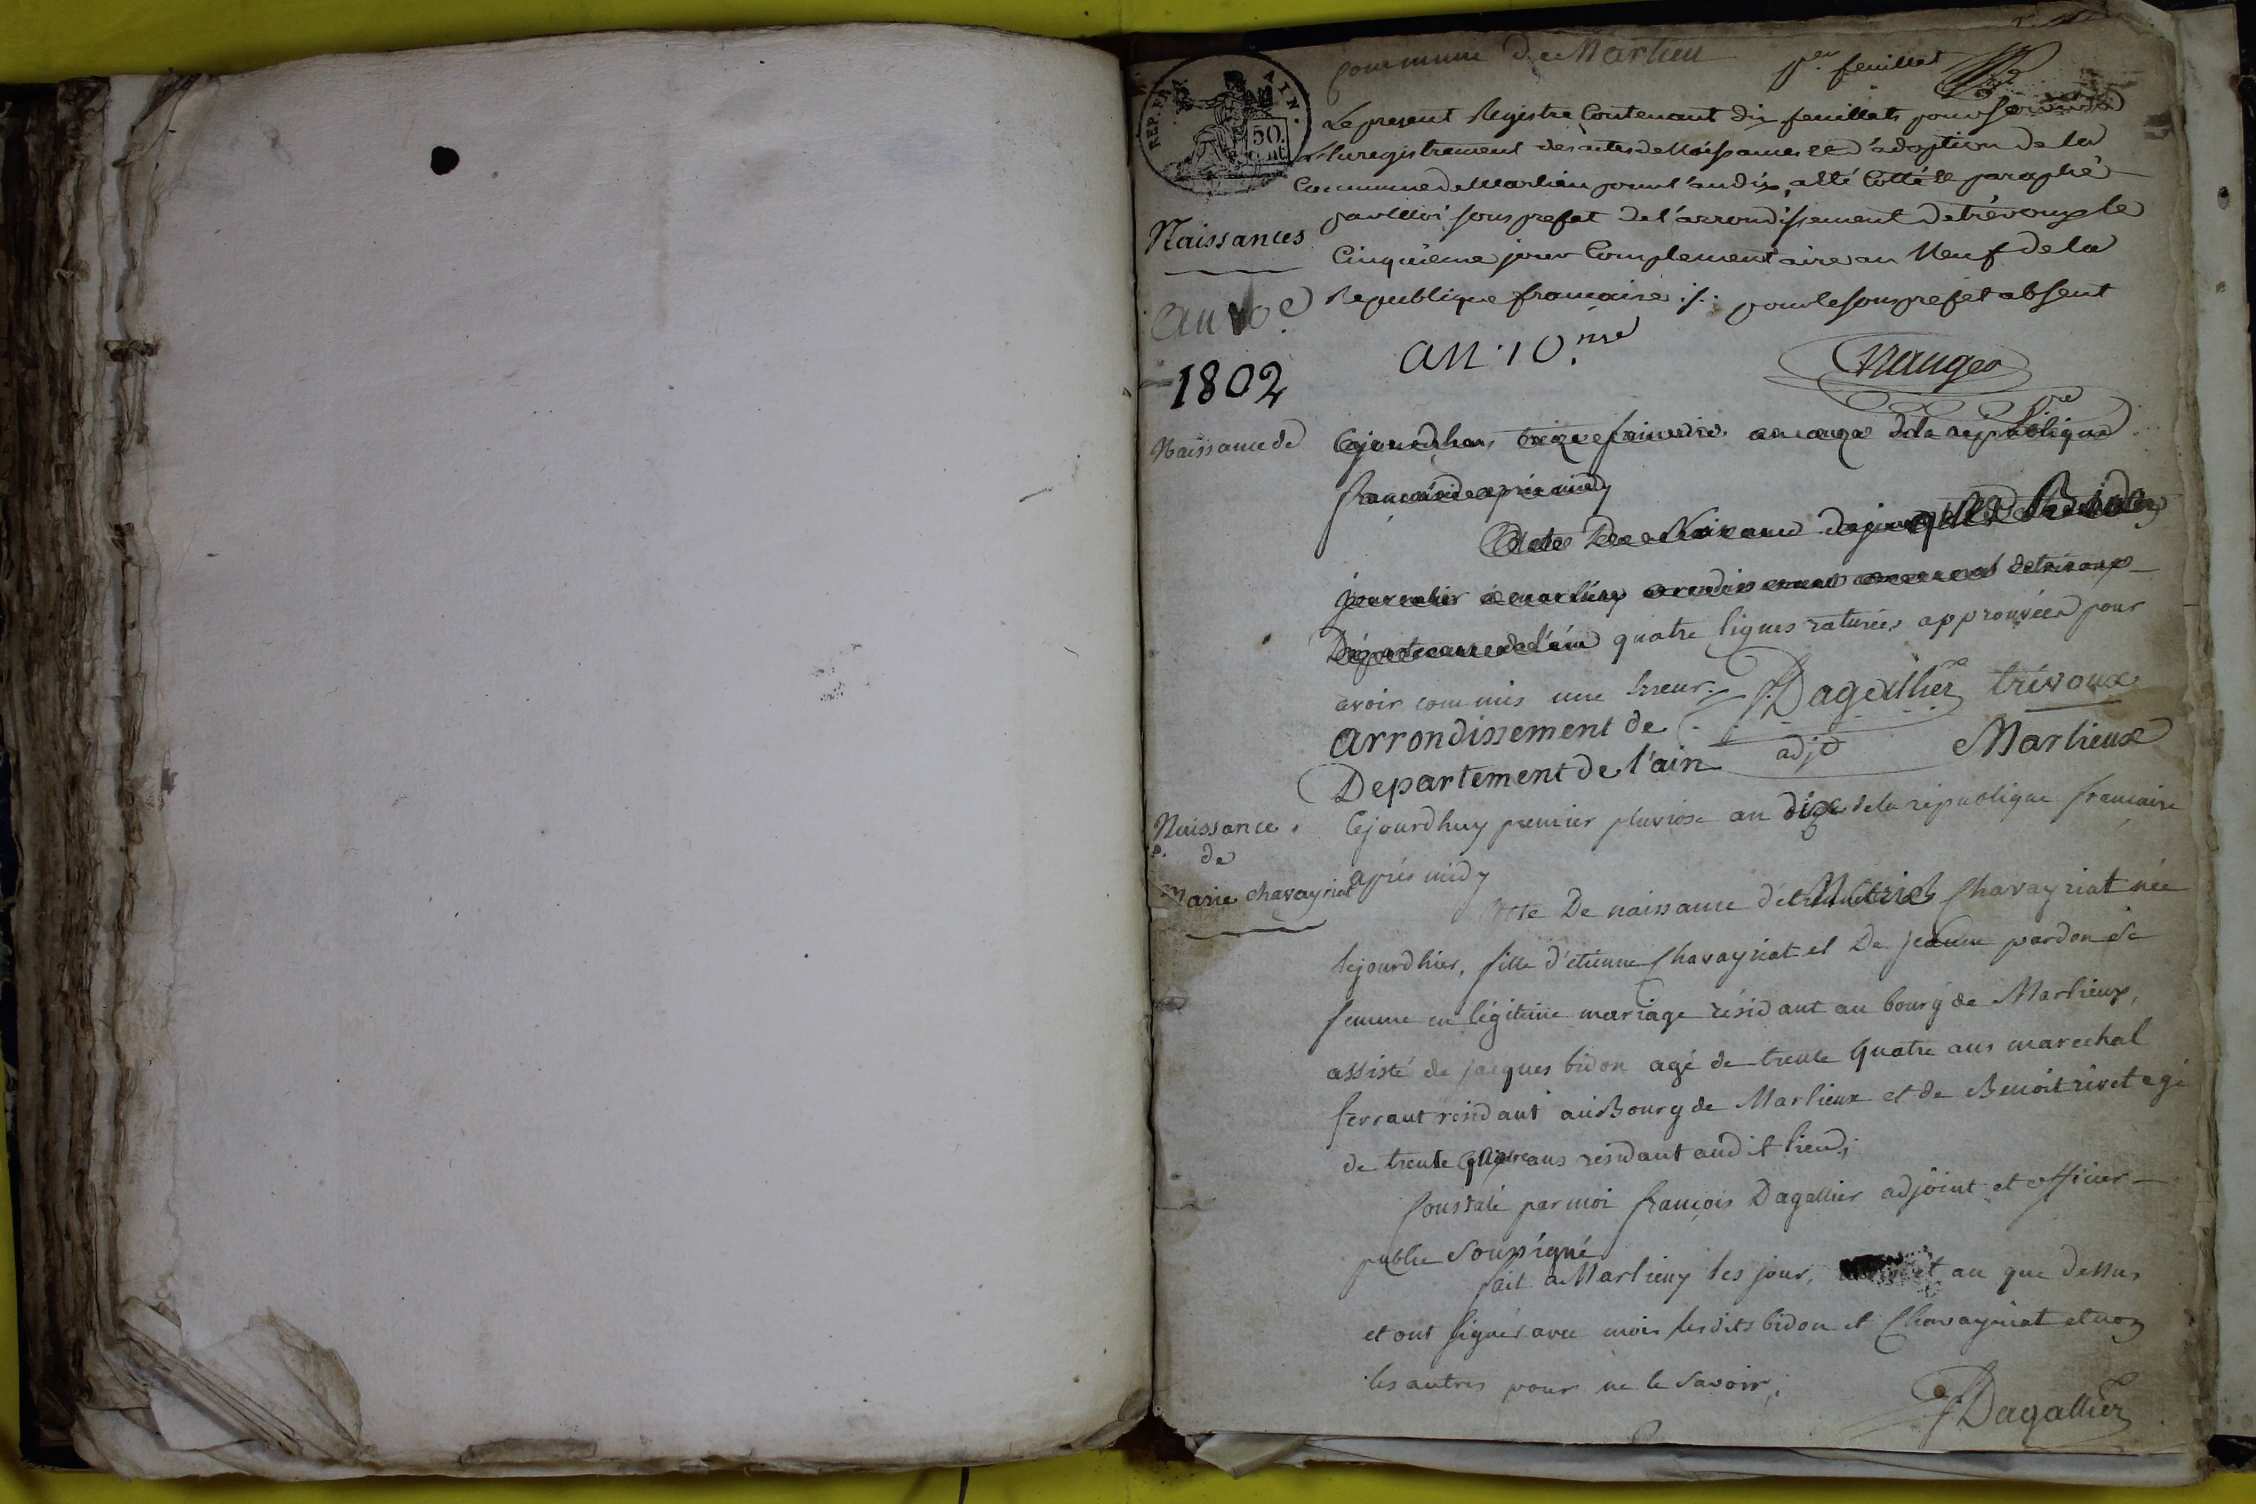 commune de Marlieu
1er feuillet
REP. FRA. AIN.
50. CENT
Le present Registre Contenant dix feuillets pour servir à
L'Enregistrement des actes de Naissances et d'adoption de la
Commune de Marlieu pour l'an dix, a été Cotté et paraphé
par Moi sous prefet de l'arrondissement de trévoux le
Cinquième jour Complementaire an Neuf de la
Republique française ./. pour le sous prefet absent
Naissances
an 10e
1802
an 10.
Naissance de
Cejourdhuy frimaire an onze de la république
française après midy
Acte De Naissance
journalier à marlieux arondissement de trévoux
Département de l'ain quatre lignes raturées approuvées pour
avoir commis une Erreur. f. Dagallier trévoux
arrondissement de adjt Marlieux
Département de l'ain
Naissance
de
Marie Chavayriat
Cejourdhuy premier pluviose an dix de la république française
après midy
Acte De naissance de Marie Chavayriat née
lejourdhier, fille d'etienne Chavayriat et De jeanne pardon sa
femme en légitime mariage résidant au bourg de Marlieux,
assisté de jacques bidon agé de trente quatre ans marechal
ferrant résidant au Bourg de Marlieux et de Benoit rivet agé
de trente ans résidant audit lieu;
Constaté par moi françois Dagallier adjoint et officier
public soussigné
fait a Marlieux les jour, et an que dessus
et ont signés avec moi lesdits bidon et Chavayriat et non
les autres pour ne le savoir;
f. Dagallier